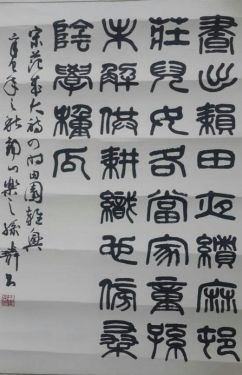 晝出耘田夜績麻邨
莊兒女各當家童孫
未解供耕織也傍桑
陰學種瓜
宋范成大詩四时田園雜興
年之秋 山樂之孫 书